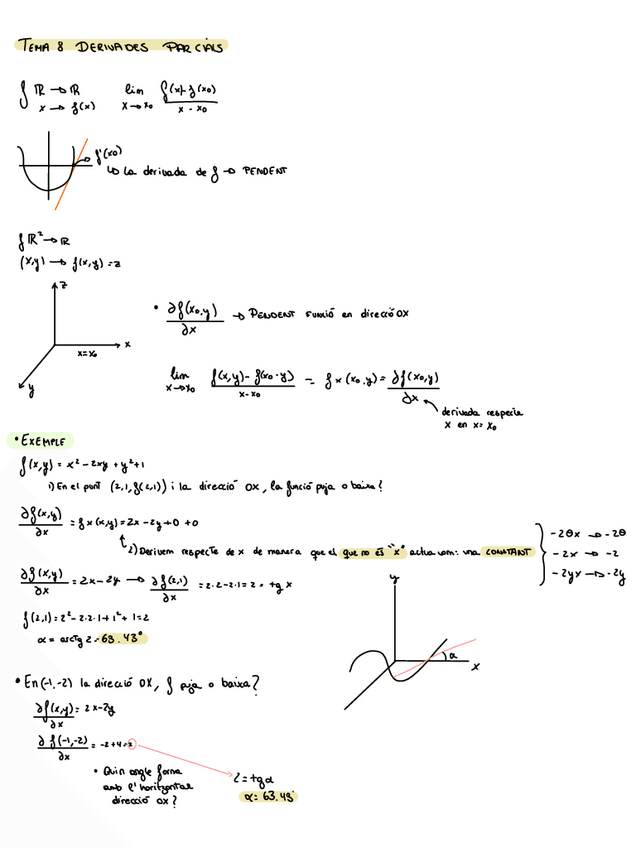 TEMA 8 DERIVADES PARCIALS
f ℝ → ℝ lim f(x)-f(x₀)
x → f(x) x→x₀ x-x₀
f'(x₀)
↳ La derivada de f → PENDENT
f ℝ² → ℝ
(x,y) → f(x,y) = z
z
• ∂f(x₀,y)/∂x → PENDENT FUNCIÓ en direcció OX
x
x=x₀
y
lim x→x₀ f(x,y)-f(x₀-y)/x-x₀ = fx(x₀,y) = ∂f(x₀,y)/∂x
derivada respecte
x en x=x₀
• EXEMPLE
f(x,y) = x² - 2xy + y² + 1
1) En el punt (2,1,f(2,1)) i la direcció OX, la funció puja o baixa?
∂f(x,y)/∂x = fx(x,y) = 2x - 2y + 0 + 0
2) Derivem respecte de x de manera que el que no és "x" actua com: una CONSTANT
-20x → -20
-2x → -2
-2yx → -2y
∂f(x,y)/∂x = 2x-2y → ∂f(2,1)/∂x = 2·2-2·1 = 2 = tg x
f(2,1) = 2²-2·2·1+1²+1 = 2
α = arctg 2 = 63.43°
y
α
x
• En (-1,-2) la direcció OX, f puja o baixa?
∂f(x,y)/∂x = 2x-2y
∂f(-1,-2)/∂x = -2+4=2
• Quin angle forma
amb l'horitzontal
direcció OX?
2 = tgα
α = 63.43°